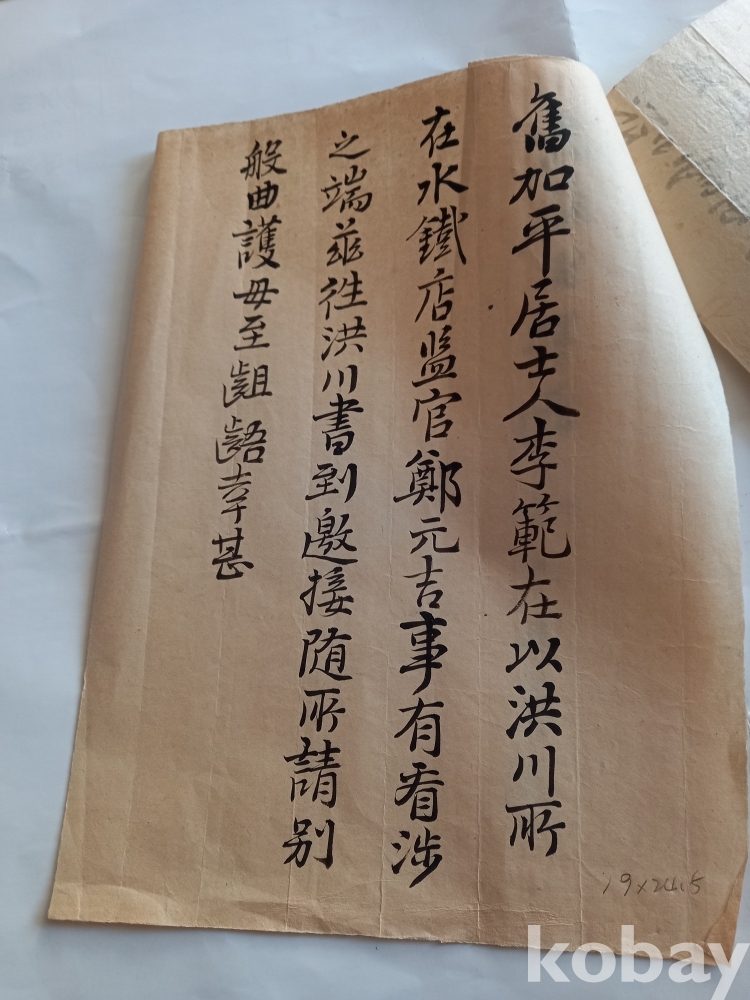 舊加平居士人李範在以洪川所
在水鐵店监官鄭元吉事有看涉
之端玆徃洪川書到邀接随所請別
般曲護毋至齟齬幸甚
kobay